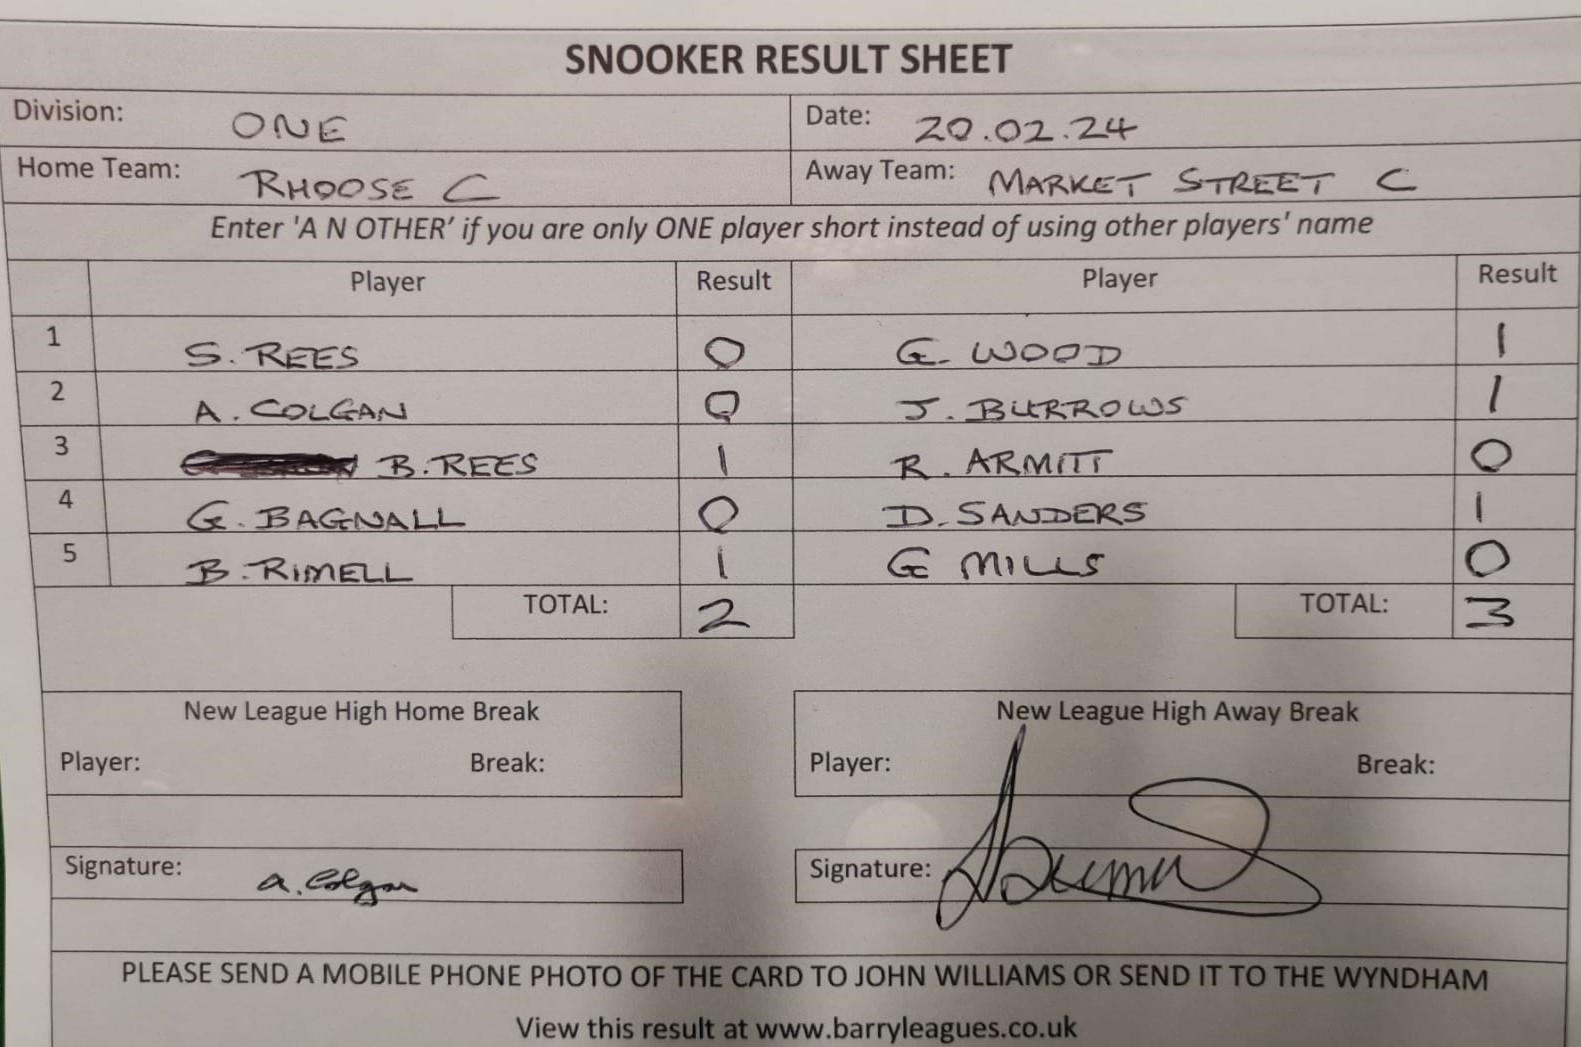 SNOOKER RESULT SHEET
Division: ONE Date: 20.02.24
Home Team: RHOOSE C Away Team: MARKET STREET C
Enter 'A N OTHER' if you are only ONE player short instead of using other players' name
Player Result Player Result
1 S. REES 0 G. WOOD 1
2 A. COLGAN 0 J. BURROWS 1
3 B. REES 1 R. ARMITT 0
4 G. BAGNALL 0 D. SANDERS 1
5 B. RIMELL 1 G MILLS 0
TOTAL: 2 TOTAL: 3
New League High Home Break New League High Away Break
Player: Break: Player: Break:
Signature: a. Colgan Signature:
PLEASE SEND A MOBILE PHONE PHOTO OF THE CARD TO JOHN WILLIAMS OR SEND IT TO THE WYNDHAM
View this result at www.barryleagues.co.uk